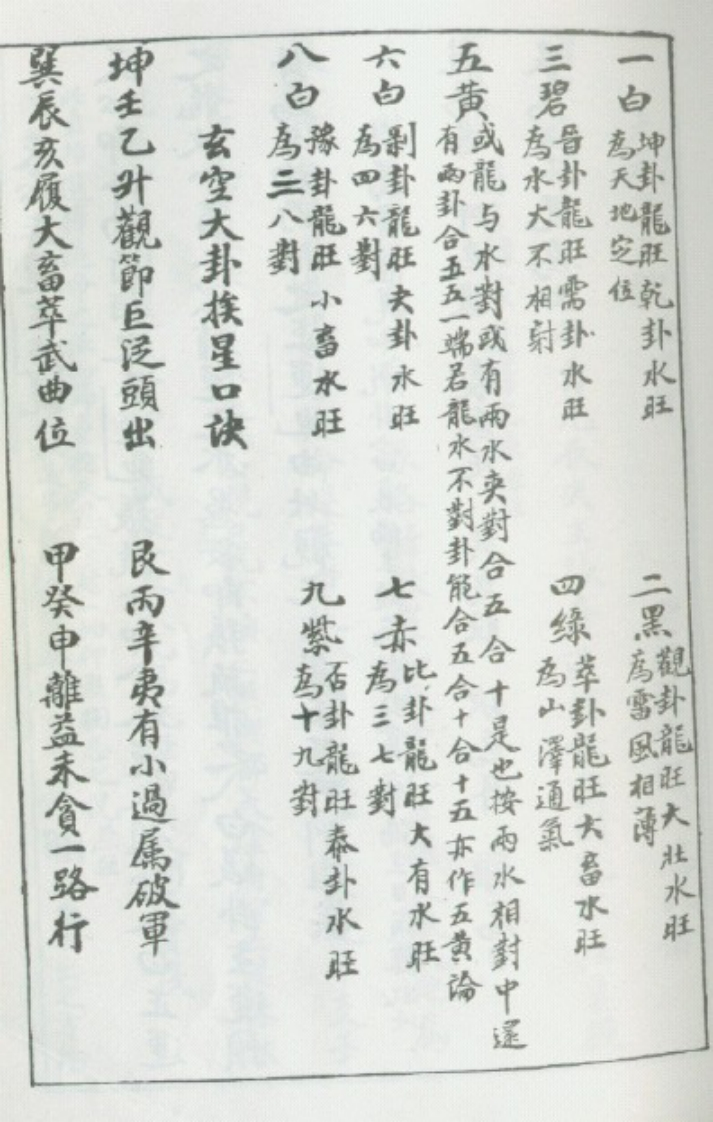 一白 坤卦龍旺乾卦水旺
為天地定位
二黑 觀卦龍旺大壯水旺
為雷風相薄
三碧 晉卦龍旺需卦水旺
為水火不相射
四綠 萃卦龍旺大畜水旺
為山澤通氣
五黃 或龍与水對或有兩水夾對合五合十是也按兩水相對中還
有兩卦合五五一端若龍水不對卦能合五合十合十五亦作五黃論
六白 剝卦龍旺夬卦水旺
為四六對
七赤 比卦龍旺大有水旺
為三七對
八白 豫卦龍旺小畜水旺
為二八對
九紫 否卦龍旺泰卦水旺
為十九對
玄空大卦挨星口訣
坤壬乙升觀節巨泛頭出 艮丙辛夷有小過属破軍
巽辰亥履大畜萃武曲位 甲癸申離益未貪一路行